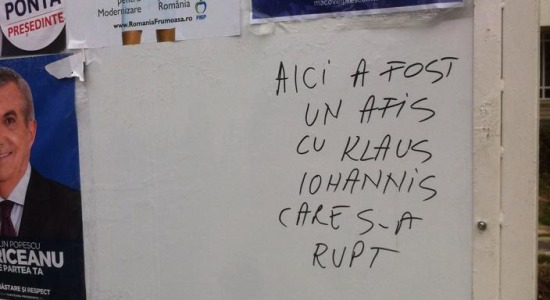 PONTA
PREȘEDINTE
Modernizare
România
www.RomaniaFrumoasa.ro
PMP
AICI A FOST
UN AFIS
CU KLAUS
IOHANNIS
CARE S-A
RUPT
LIN POPESCU
RICEANU
E PARTEA TA
ĂSTARE ȘI RESPECT